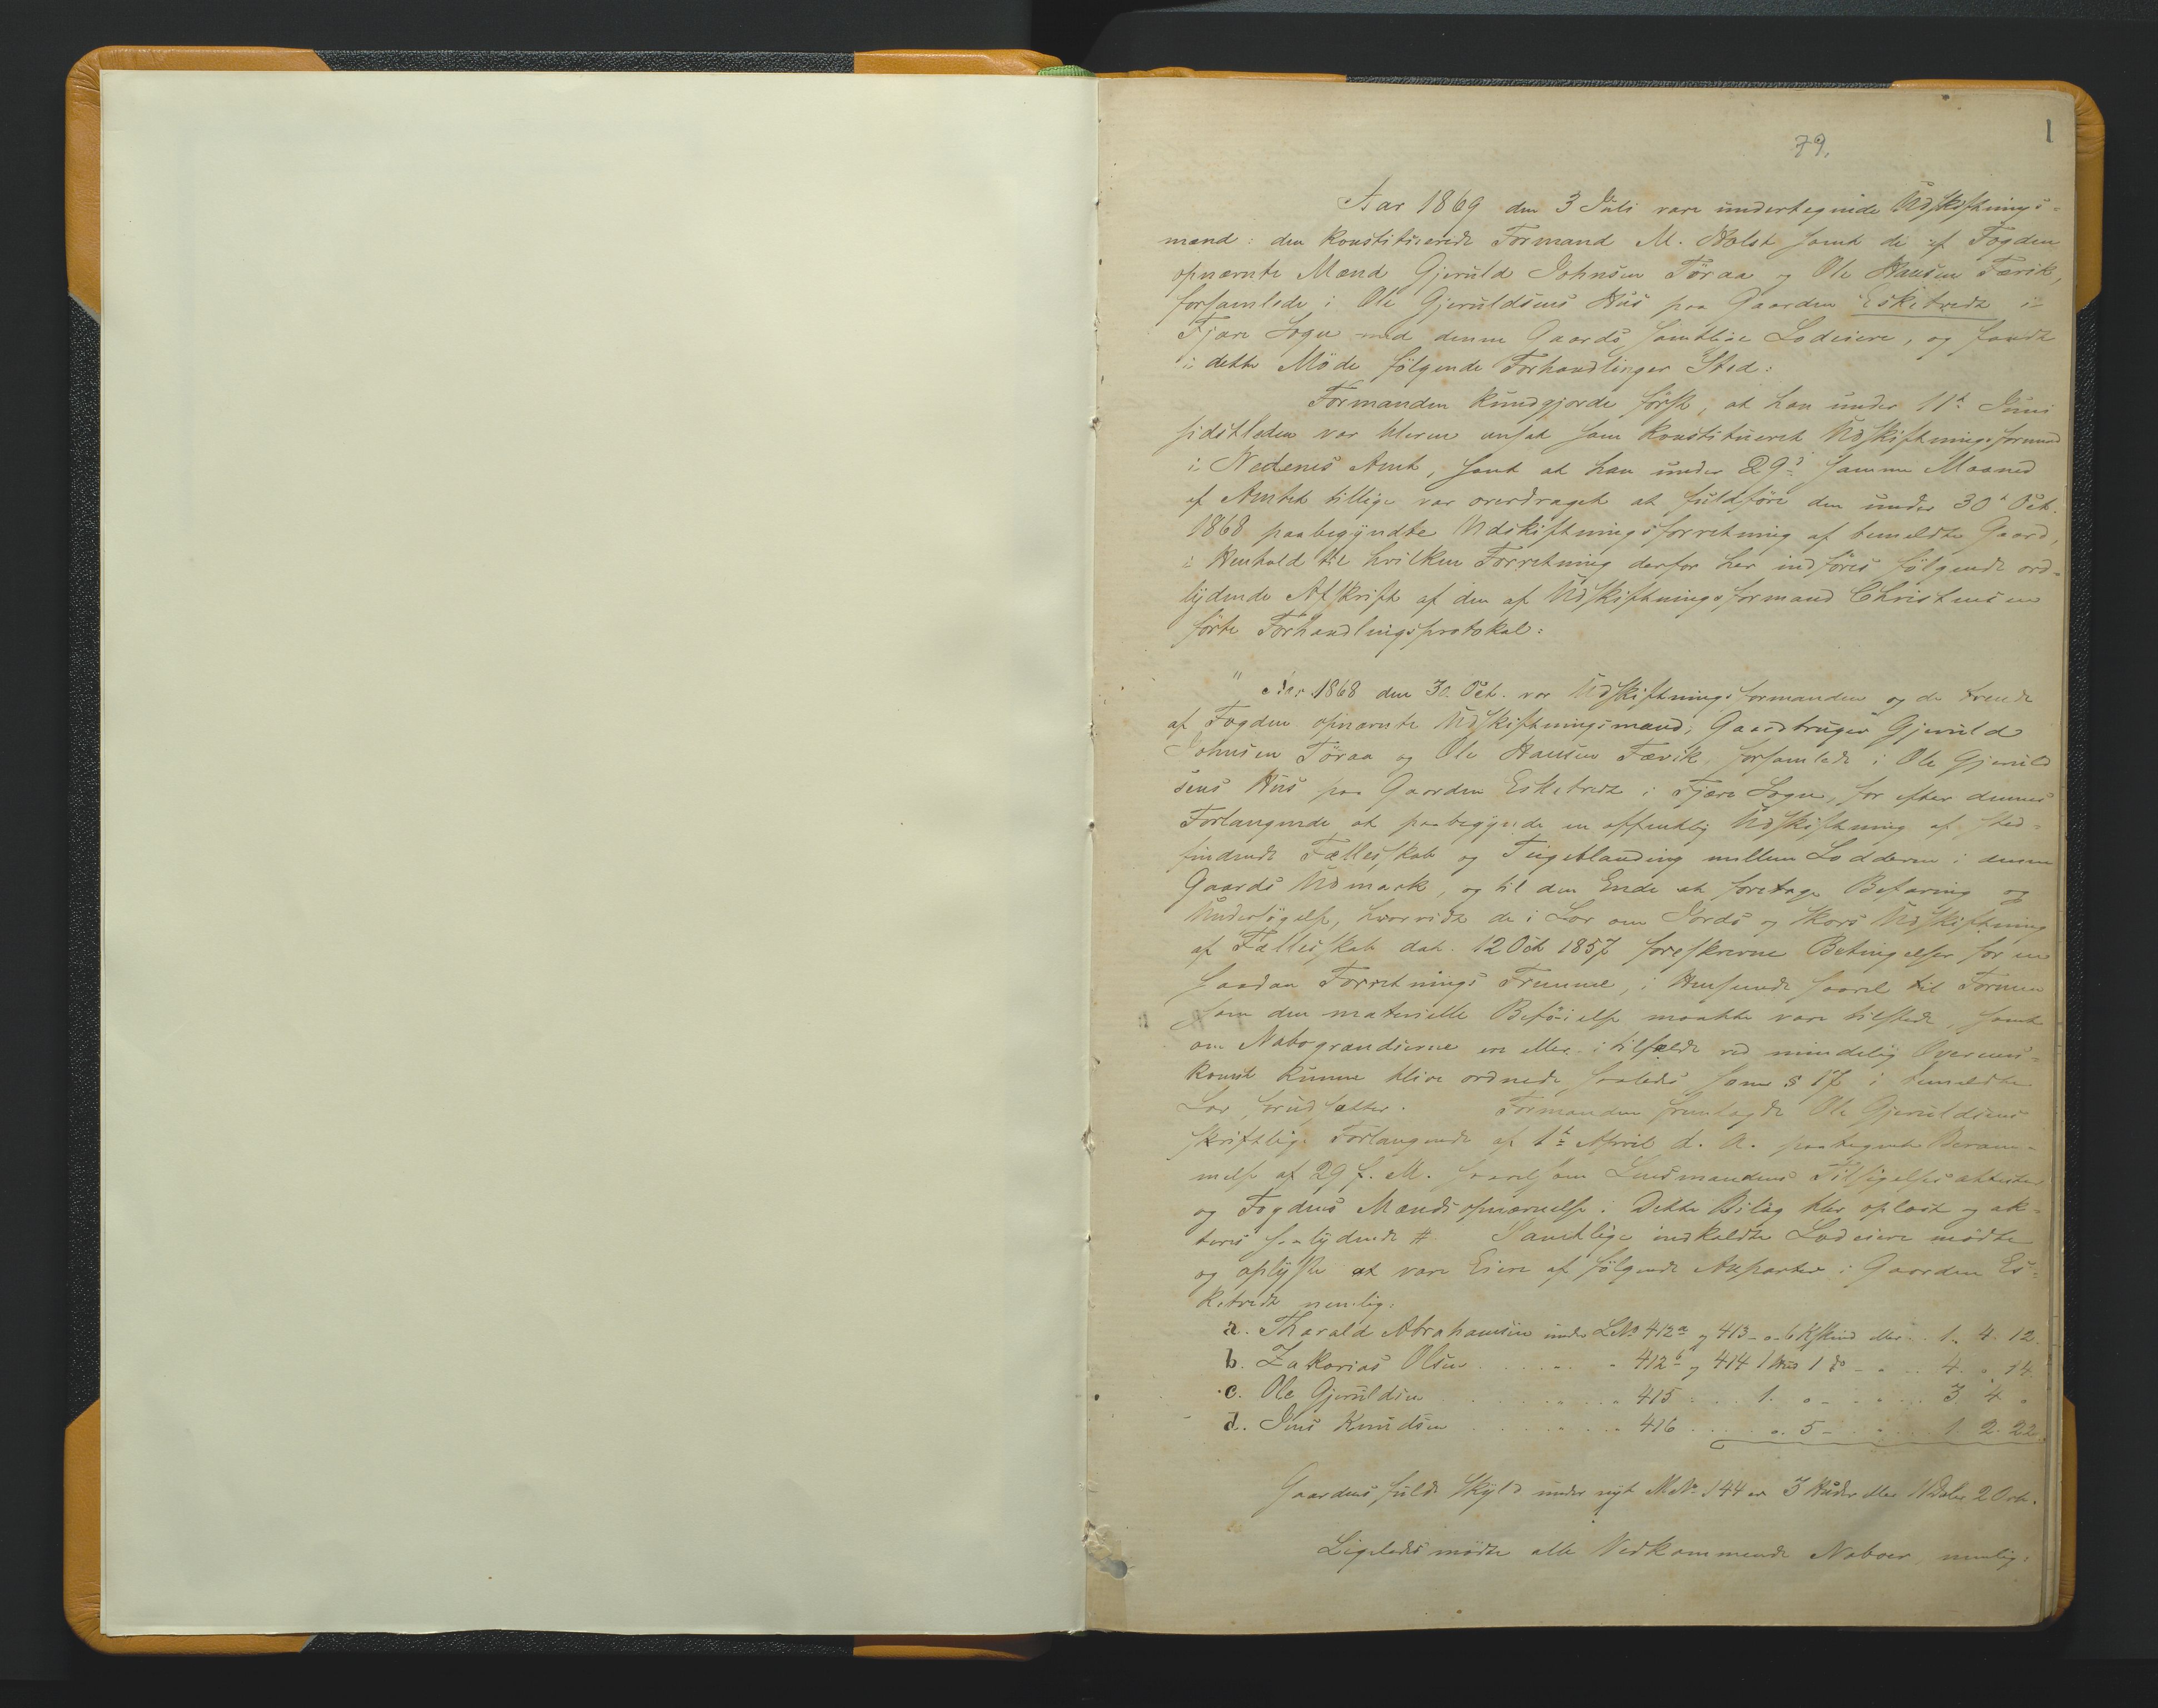 1
79.
Aar 1869 den 3 Juli vare undertegnede Udskiftnings-
mænd: den konstituerede Formand M. Holst samt de af Fogden
opnævnte Mænd Gjeruld Johnsen Töraa og Ole Hansen Fævik,
forsamlede i Ole Gjeruldsens Hus paa Gaarden Esketvedt i
Fjære Sogn med denne Gaards samtlige Lodeiere, og fandt
i dette Möde fölgende Forhandlinger Sted:
Formanden kundgjorde först, at han under 11te Juni
sidstleden var bleven ansat som konstitueret Udskiftningsformand
i Nedenes Amt, samt at han under 29de samme Maaned
af Amtet tillige var overdraget at fuldföre den under 30te Oct.
1868 paabegyndte Udskiftningsforretning af bemeldte Gaard,
i Henhold til hvilken Forretning derfor her indföres fölgende ord-
lydende Afskrift af den af Udskiftningsformand Christensen
förte Forhandlingsprotokol:
" Aar 1868 den 30. Oct. var Udskiftningsformanden og de tvende
af Fogden opnævnte Udskiftningsmænd, Gaardbruger Gjeruld
Johnsen Töraa og Ole Hansen Fævik, forsamlede i Ole Gjeruld
sens Hus paa Gaarden Esketvedt i Fjære Sogn, for efter dennes
Forlangende at paabegynde en offentlig Udskiftning af sted-
findende Fællesskab og Teigeblanding mellem Lodderne i denne
Gaards Udmark, og til den Ende at foretage Befaring og
Undersögelse, hvorvidt de i Lov om Jords og Skovs Udskiftning
af Fællesskab dat. 12 Oct 1857 foreskrevne Betingelser for en
saadan Forretnings Fremme, i Henseende saavel til Formen
som den materielle Beföielse maatte være tilstede, samt
om Nabogrændserne ere eller i tilfælde ved mindelig Overens-
komst kunne blive ordnede saaledes som § 17 i bemeldte
Lov forudsætter. Formanden fremlagde Ole Gjeruldsens
skriftlige Forlangende af 1te April d. A. paategnet Beram-
melse af 29 f. M. saavelsom Lensmandens Tilsigelsesattester
og Fogdens Mændsopnævnelse. Dette Bilag blev oplæst og ak-
teres saalydende # Samtlige indkaldte Lodeiere mödte
og oplyste at være Eiere af fölgende Anparter i Gaarden Es-
ketvedt nemlig:
a. Tharald Abrahamsen under LNo 412a og 413 - " 6 Kskind eller . 1. 4. 12.
b. Zakarias Olsen . . . . . 412b og 414 1 Hud 1 do - . . . 4. " 14
c. Ole Gjeruldsen . . . . 415 . . . 1. " - . . . 3 4 "
d. Jens Knudsen . . . . 416 . . . ". 5 - . . . 1. 2. 22.
Gaardens fulde Skyld under nyt MNo 144 er 3 Huder eller 11 Daler 2 Ort.
Ligeledes mödte alle Vedkommende Naboer, nemlig: